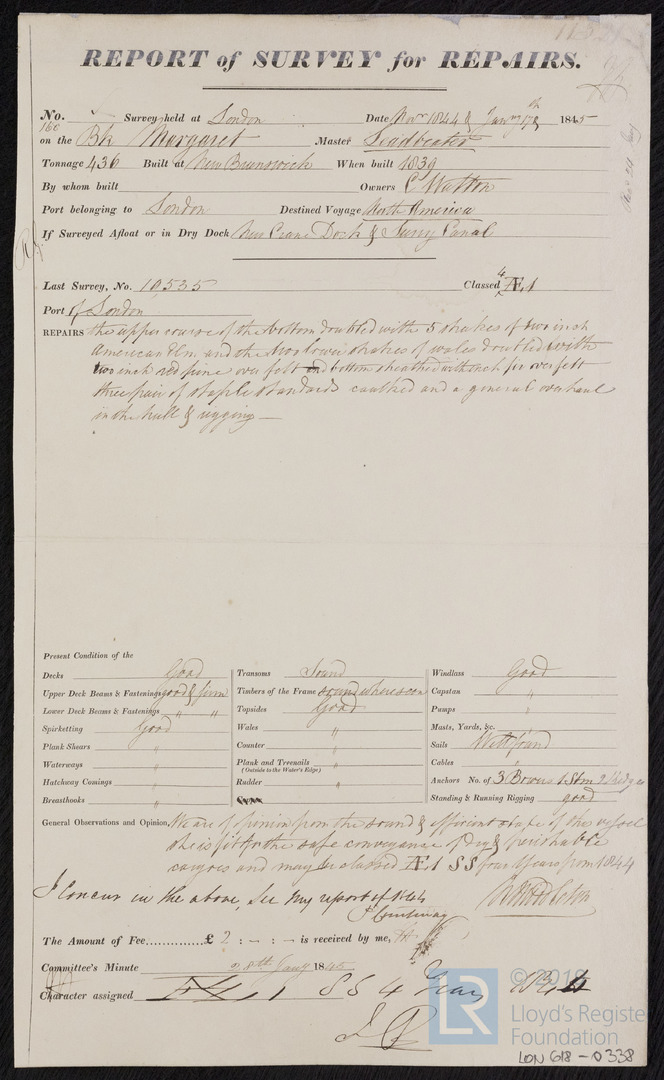 REPORT of SURVEY for REPAIRS.
No. Survey held at London Date Novr 1844 & Jany 17th 1845
on the Bk Margaret Master Leadbeater
Tonnage 436 Built at New Brunswick When built 1839
By whom built Owners C Watton
Port belonging to London Destined Voyage North America
If Surveyed Afloat or in Dry Dock New Crane Dock & Surry Canal
Last Survey, No. 10,535 Classed 4 Æ1
Port of London
REPAIRS the upper course of the bottom doubled with 5 strakes of two inch
American Elm and the two lower strakes of wales doubled with
two inch red pine over felt and bottom sheathed with inch fir over felt
three pair of staple standards caulked and a general overhaul
in the hull & rigging —
Present Condition of the
Decks Good
Upper Deck Beams & Fastenings good & firm
Lower Deck Beams & Fastenings " "
Spirketting Good
Plank Shears "
Waterways "
Hatchway Comings "
Breasthooks "
Transoms Sound
Timbers of the Frame sound where seen
Topsides Good
Wales "
Counter "
Plank and Treenails "
(Outside to the Water's Edge)
Rudder "
Windlass Good
Capstan "
Pumps "
Masts, Yards, &c. "
Sails Well found
Cables "
Anchors No. of 3 Bowers 1 Stm 2 Kedges
Standing & Running Rigging good
General Observations and Opinion, We are of opinion from the sound & efficient state of this vessel
she is fit for the safe conveyance of dry & perishable
cargoes and may be classed Æ1 SS four Years from 1844
I concur in the above, see my report of 1844
J Courtenay
The Amount of Fee............... £ 2 : - : - is received by me,
Committee's Minute 28th Jany 1845
Character assigned Æ 1 SS 4 Years
© 2018
LR
Lloyd's Register
Foundation
LON 618-0338